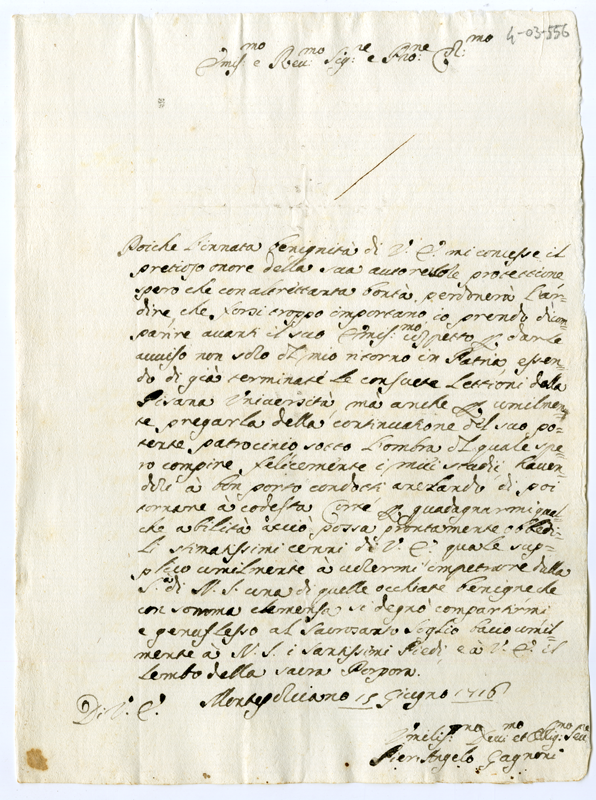 4-03-556
Emis.mo e Rev.mo Sig.re e P.ne Col.mo
Poiche l'innata benignità di V. E. mi concesse il
pretioso onore della sua autorevole protettione
spero che con altrettanta bontà, perdonerà l'ar-
dire, che forsi troppo importuno io prendo di com-
parire avanti il suo Emis.mo cospetto p. darle
avviso non solo del mio ritorno in Patria essen-
do di già terminate le consuete Lettioni della
Pisana Università, mà anche p. umilmen-
te pregarla della continuatione del suo po-
tente patrocinio sotto l'ombra del quale spe-
ro compire felicemente i miei studi, havendoli
à bon porto condotti anelando di poi
tornare à codesta Corte p. guadagnarmi qual-
che abilità acciò possa prontamente obbedi-
re li stimatissimi cenni di V. E. quale sup-
plico umilmente à volermi impetrare dalla
S.tà di N. S. una di quelle occhiate benigne che
con somma clemenza si degnò compartirmi
e genuflesso al Sacrosanto Soglio bacio umil-
mente à N. S. i santissimi Piedi, e à V. E. il
lembo della sacra Porpora.
Di V. E. Montepulciano 15 Giugno 1716
Umilis.mo Dev.mo et Oblig.mo Ser.re
Pier Angelo Gagnoni